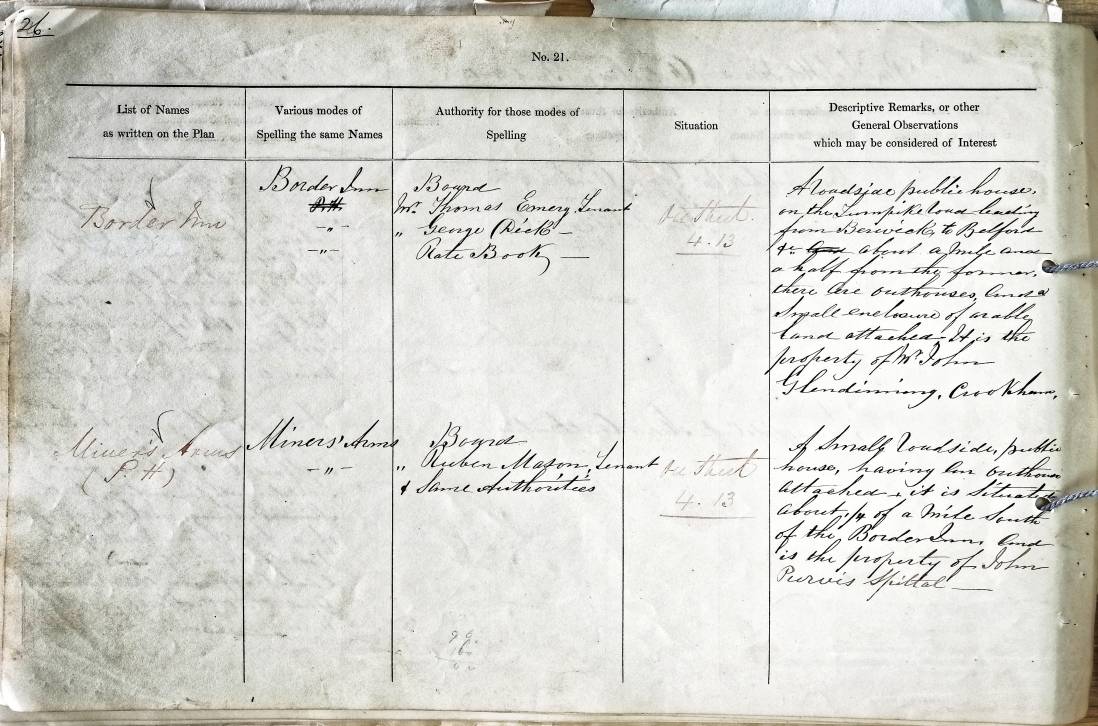 26.
No. 21.
List of Names
as written on the Plan
Various modes of
Spelling the same Names
Authority for those modes of
Spelling
Situation
Descriptive Remarks, or other
General Observations
which may be considered of Interest
Border Inn
Border Inn
P.H.
-"-
-"-
Board
Mr. Thomas Emery, Tenant
" George Dick -
Rate Book, —
See Sheet.
4.13
A roadside public house,
on the Turnpike road leading
from Berwick to Belford
&c. about a Mile and
a half from the former,
there are outhouses, and a
Small enclosure of arable
land attached. It is the
property of Mr John
Glendinning, Crookham,
Miner's Arms
(P.H)
Miners' Arms
-"-
Board
" Ruben Mason, Tenant
& Same Authorities
See Sheet
4.13
A Small roadside, public
house, having an outhouse
attached, it is Situated
about 1/4 of a Mile South
of the Border Inn, and
is the property of John
Purvis Spittal —